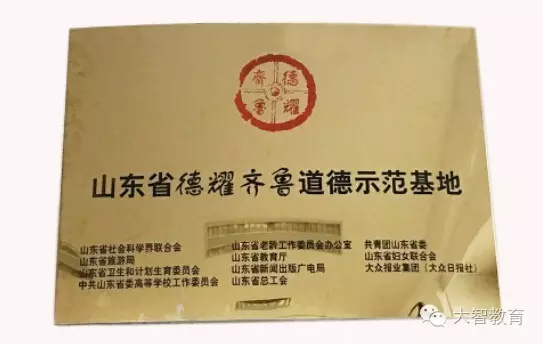 德耀
齐鲁
山东省德耀齐鲁道德示范基地
山东省社会科学界联合会
山东省旅游局
山东省卫生和计划生育委员会
中共山东省委高等学校工作委员会
山东省老龄工作委员会办公室
山东省教育厅
山东省新闻出版广电局
山东省总工会
共青团山东省委
山东省妇女联合会
大众报业集团（大众日报社）
大智教育